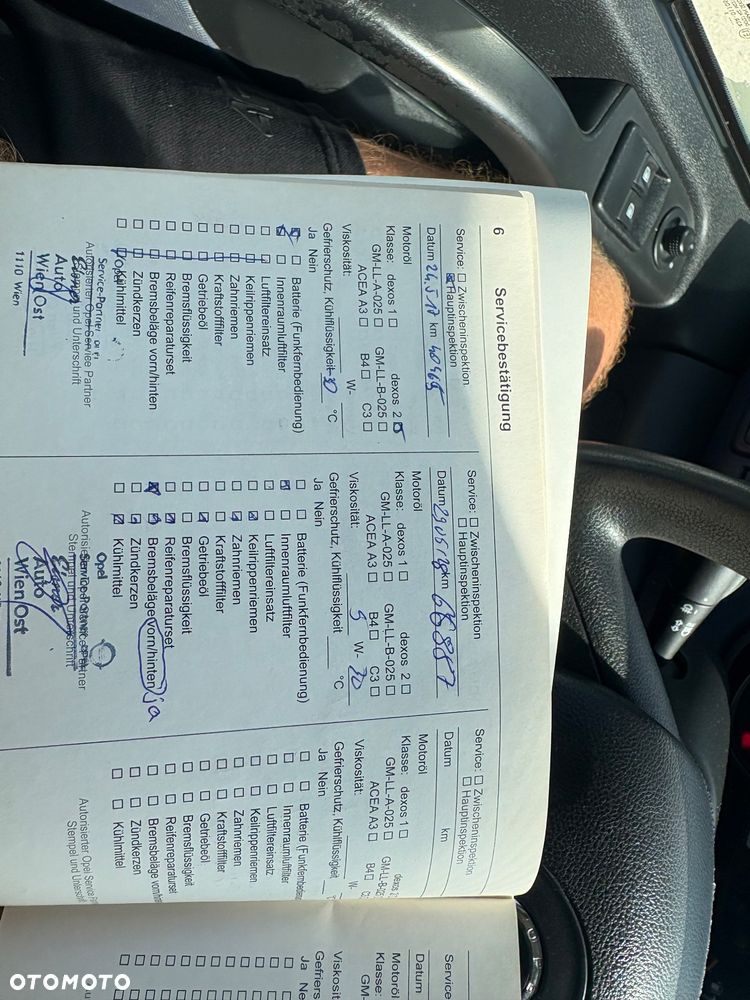 6
Servicebestätigung
Service: Zwischeninspektion
Hauptinspektion
Datum km 40965
Motoröl
Klasse: dexos 1 dexos 2
GM-LL-A-025 GM-LL-B-025
ACEA A3 B4 C3
Viskosität: W-
Gefrierschutz, Kühlflüssigkeit -30 °C
Ja Nein
Batterie (Funkfernbedienung)
Innenraumluftfilter
Luftfiltereinsatz
Keilrippenriemen
Zahnriemen
Kraftstofffilter
Getriebeöl
Bremsflüssigkeit
Reifenreparaturset
Bremsbeläge vorn/hinten
Zündkerzen
Kühlmittel
Opel
Service-Partner
Autorisierter Opel Service Partner
Stempel und Unterschrift
Auto
Wien Ost
1110 Wien
Service: Zwischeninspektion
Hauptinspektion
Datum 29.05.18 km 66887
Motoröl
Klasse: dexos 1 dexos 2
GM-LL-A-025 GM-LL-B-025
ACEA A3 B4 C3
Viskosität: 5 W- 30
Gefrierschutz, Kühlflüssigkeit °C
Ja Nein
Batterie (Funkfernbedienung)
Innenraumluftfilter
Luftfiltereinsatz
Keilrippenriemen
Zahnriemen
Kraftstofffilter
Getriebeöl
Bremsflüssigkeit
Reifenreparaturset
Bremsbeläge vorn/hinten ja
Zündkerzen
Kühlmittel
Opel
Service-Partner
Autorisierter Opel Service Partner
Stempel und Unterschrift
Auto
Wien Ost
Service: Zwischeninspektion
Hauptinspektion
Datum km
Motoröl
Klasse: dexos 1 dexos 2
GM-LL-A-025 GM-LL-B-025
ACEA A3 B4
Viskosität: W-
Gefrierschutz, Kühlflüssigkeit
Ja Nein
Batterie (Funkfernbedien
Innenraumluftfilter
Luftfiltereinsatz
Keilrippenriemen
Zahnriemen
Kraftstofffilter
Getriebeöl
Bremsflüssigkeit
Reifenreparaturset
Bremsbeläge vorn/hin
Zündkerzen
Kühlmittel
Autorisierter Opel Service
Stempel und Unterschrift
Service
Datum
Motoröl
Klasse:
GM-
Viskosi
Gefriers
Ja Ne
OTOMOTO